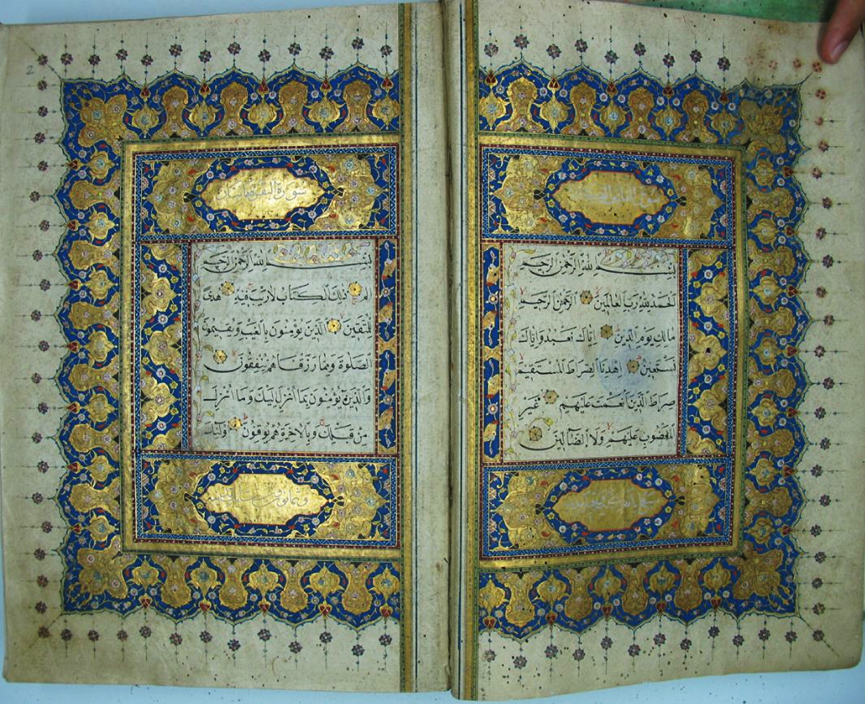 بسم الله الرحمن الرحيم
الحمد لله رب العالمين الرحمن الرحيم
مالك يوم الدين اياك نعبد واياك
نستعين اهدنا الصراط المستقيم
صراط الذين انعمت عليهم غير
المغضوب عليهم ولا الضالين
سورة البقرة
بسم الله الرحمن الرحيم
الم ذلك الكتاب لا ريب فيه هدى
للمتقين الذين يؤمنون بالغيب ويقيمون
الصلوة ومما رزقناهم ينفقون
والذين يؤمنون بما انزل اليك وما انزل
من قبلك وبالاخرة هم يوقنون اولئك